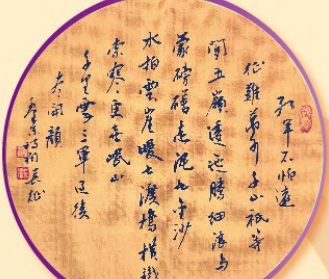 紅軍不怕遠
征難萬水千山祇等
閒五嶺逶迤騰細浪烏
蒙磅礴走泥丸金沙
水拍雲崖暖大渡橋橫鐵
索寒更喜岷山
千里雪三軍過後
盡開顏
詩詞長征